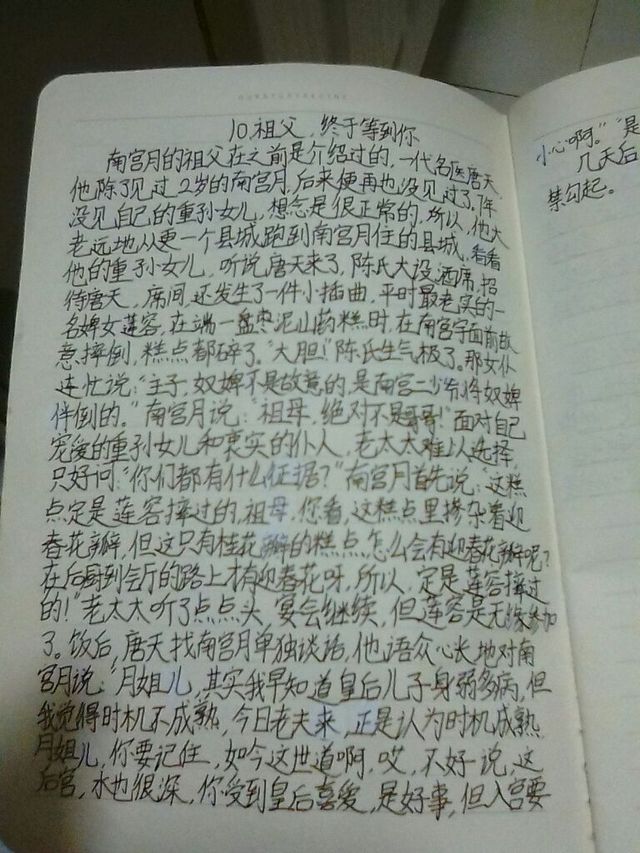 10.祖父，终于等到你
南宫月的祖父在之前是介绍过的，一代名医唐天
他除了见过2岁的南宫月，后来便再也没见过了，
没见自己的重孙女儿，想念是很正常的，所以，他大
老远地从更一个县城跑到南宫月住的县城，看看
他的重孙女儿，听说唐天来了，陈氏大设酒席，招
待唐天，席间，还发生了一件小插曲，平时最老实的一
名婢女莲容，在端一盘枣泥山药糕时，在南宫宇面前故
意摔倒，糕点都碎了。“大胆！”陈氏生气极了。那女仆
连忙说：“主子，奴婢不是故意的，是南宫二少爷将奴婢
伴倒的。”南宫月说：“祖母，绝对不是哥哥！”面对自己
宠爱的重孙女儿和衷实的仆人，老太太难以选择，
只好问：“你们都有什么证据？”南宫月首先说：“这糕
点定是莲容摔过的，祖母，你看，这糕点里掺杂着迎
春花瓣，但这只有桂花瓣的糕点怎么会有迎春花瓣呢？
在后厨到会厅的路上才有迎春花呀，所以，定是莲容摔过
的！”老太太听了点点头，宴会继续，但莲容是无缘参加
了。饭后，唐天找南宫月单独谈话，他语众心长地对南
宫月说：“月姐儿，其实我早知道皇后儿子身弱多病，但
我觉得时机不成熟，今日老夫来，正是认为时机成熟
月姐儿，你要记住，如今这世道啊，哎，不好说，这
后宫，水也很深，你受到皇后喜爱，是好事，但入宫要
小心啊。”“是
几天后
禁勾起。